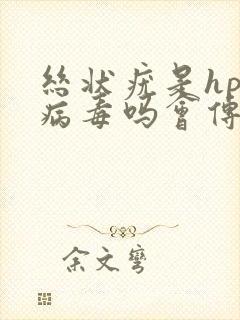 丝状疣是hp
病毒吗会传
余文弯